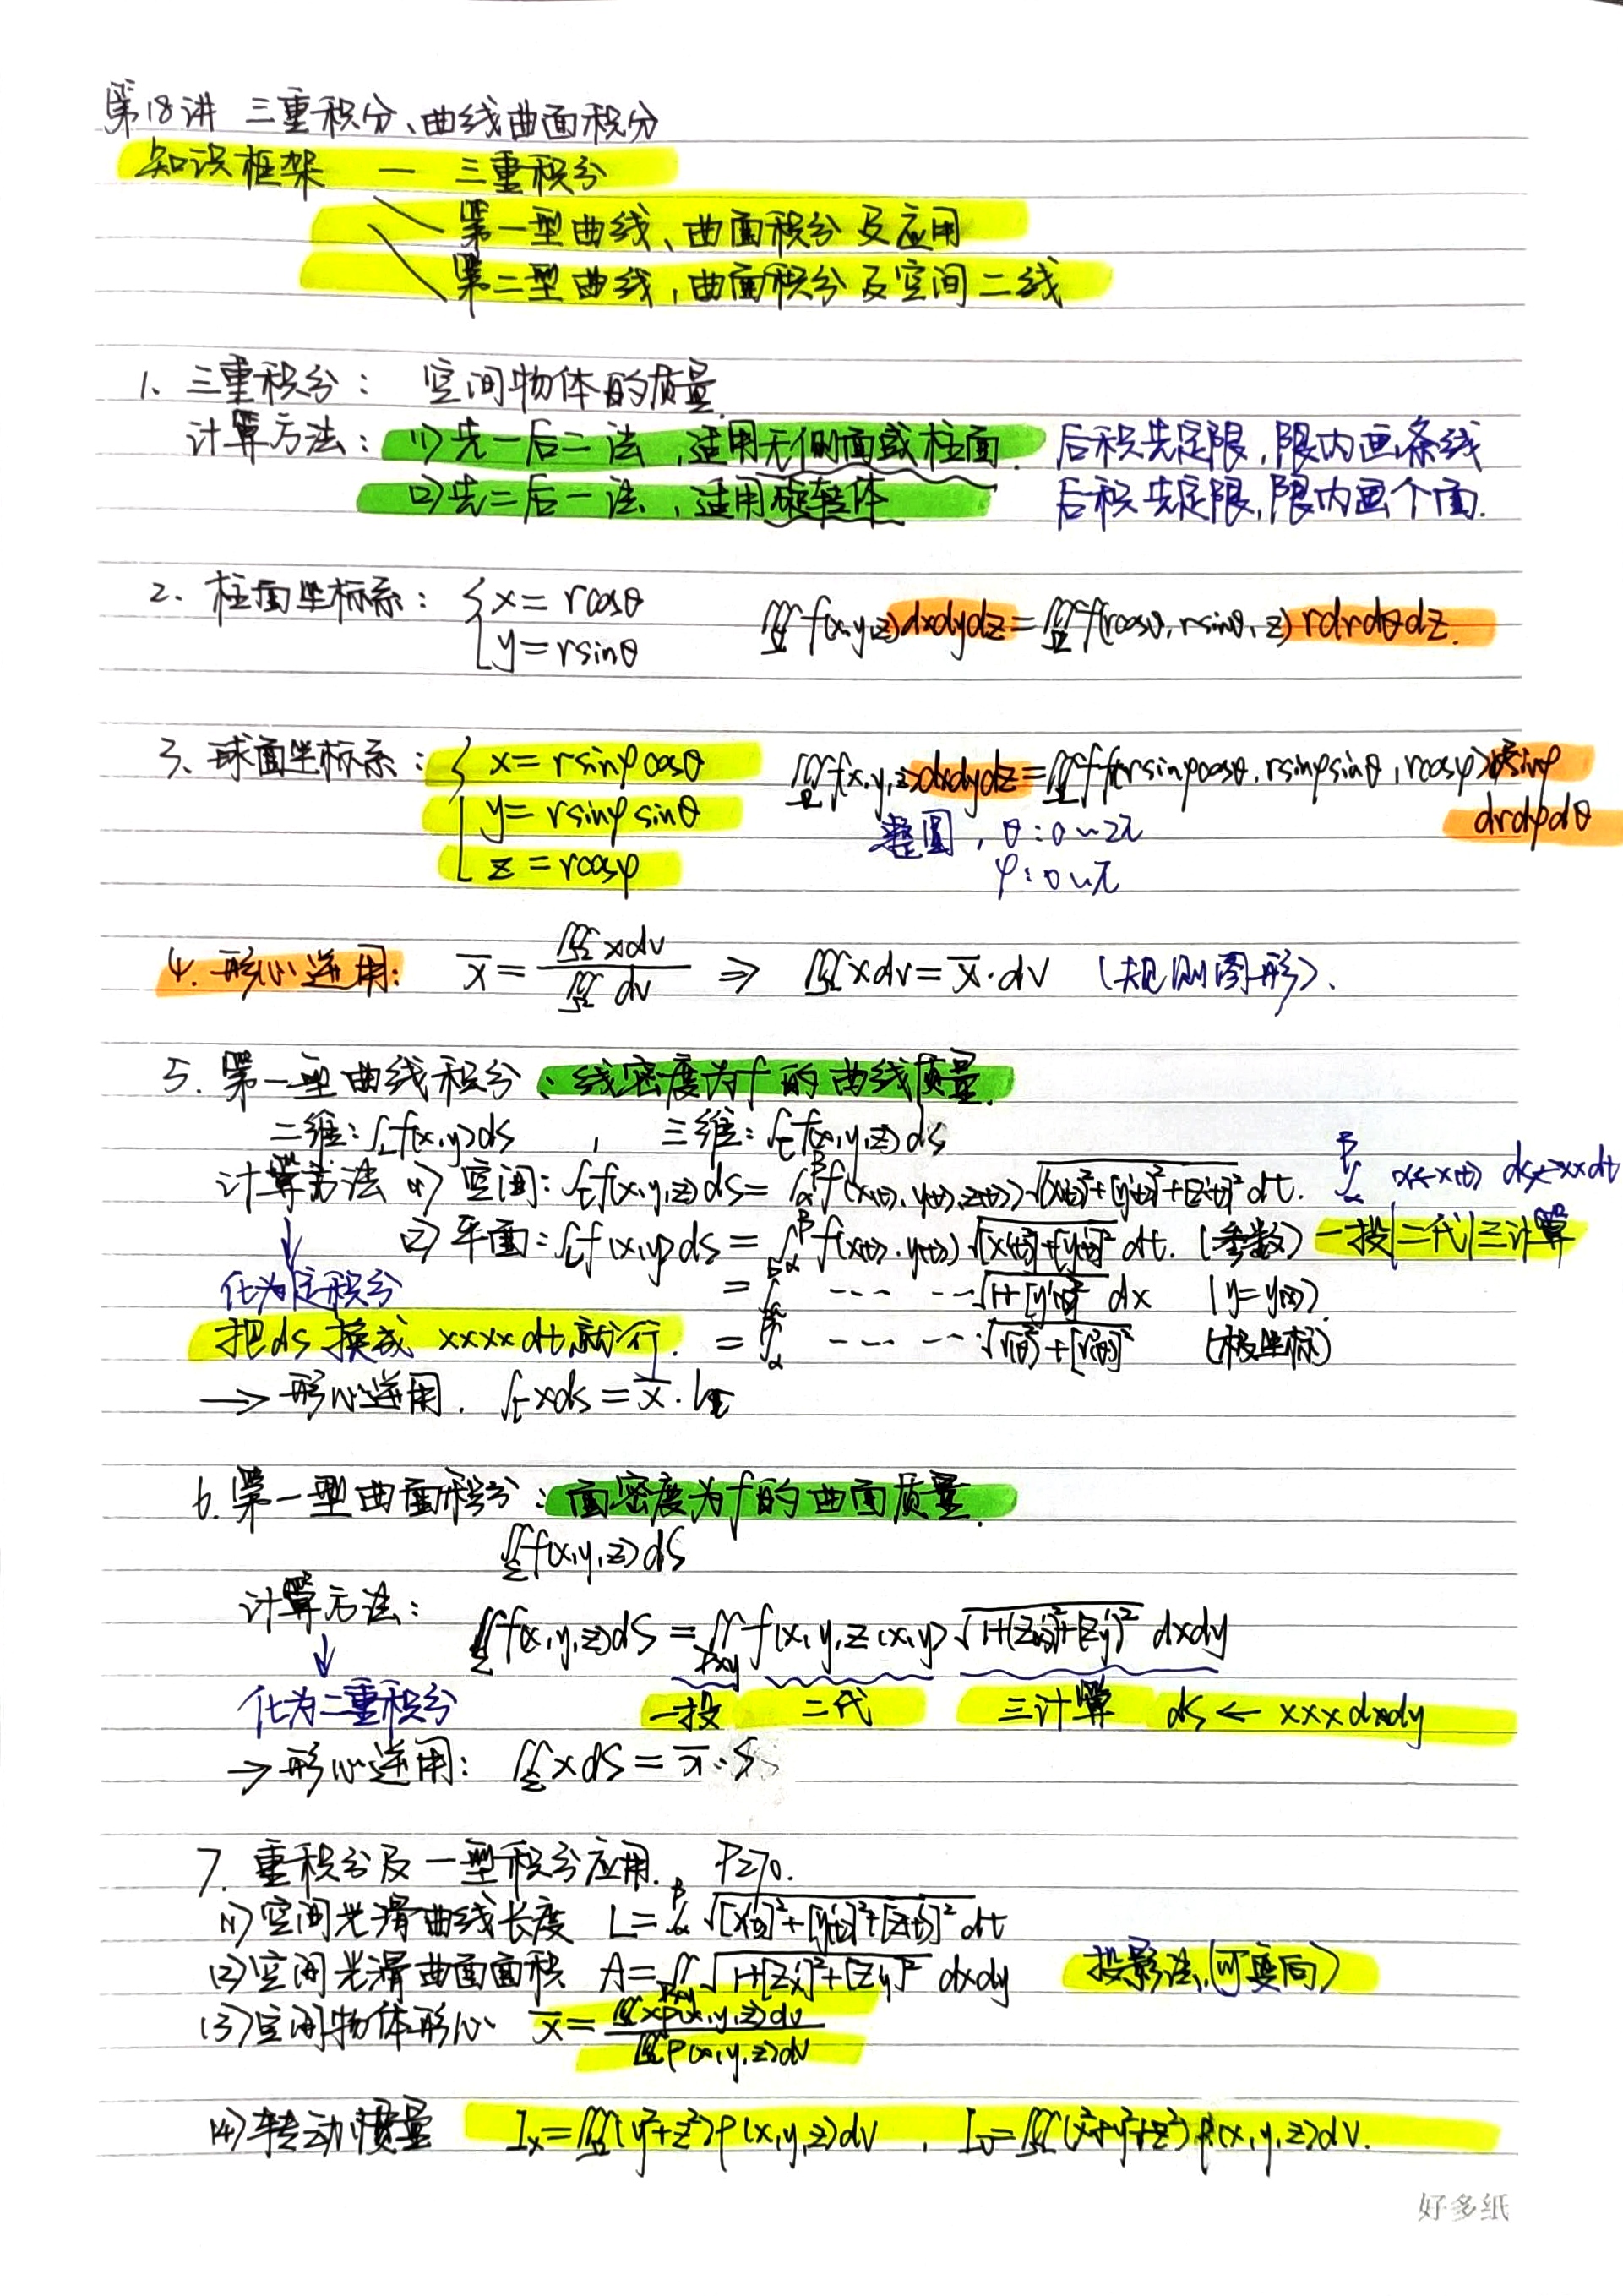 第18讲 三重积分、曲线曲面积分
知识框架 — 三重积分
第一型曲线、曲面积分及应用
第二型曲线,曲面积分及空间二线
1、三重积分: 空间物体的质量.
计算方法: (1)先一后二法,适用无侧面或柱面. 后积先定限,限内画条线
(2)先二后一法,适用旋转体 后积先定限,限内画个面.
2、柱面坐标系: { x = rcosθ
y = rsinθ
∭Ω f(x,y,z)dxdydz = ∭Ω f(rcosθ, rsinθ, z) rdrdθdz.
3、球面坐标系: { x = rsinφcosθ
y = rsinφsinθ
z = rcosφ
∭Ω f(x,y,z)dxdydz = ∭Ω f(rsinφcosθ, rsinφsinθ, rcosφ) r²sinφ
drdφdθ
整圆, θ: 0~2π
φ: 0~π
4. 形心逆用: x̄ = ∭Ω xdv / ∭Ω dv ⇒ ∭Ω xdv = x̄·dV (规则图形).
5. 第一型曲线积分、线密度为f的曲线质量.
二维: ∫L f(x,y)ds , 三维: ∫Γ f(x,y,z)ds
计算方法 (1) 空间: ∫Γ f(x,y,z)ds = ∫α^β f(x(t),y(t),z(t)) √([x'(t)]²+[y'(t)]²+[z'(t)]²) dt. ∫α^β x←x(t) ds←xxdt
(2) 平面: ∫L f(x,y)ds = ∫α^β f(x(t),y(t)) √([x'(t)]²+[y'(t)]²) dt. (参数) 一投|二代|三计算
化为定积分 = ∫ --- --- √(1+[y'(x)]²) dx (y=y(x))
把ds换成 xxxxdt就行. = ∫α^β --- --- √([r(θ)]²+[r'(θ)]²) (极坐标)
→ 形心逆用. ∫Γ xds = x̄·lΓ
6. 第一型曲面积分: 面密度为f的曲面质量.
∬Σ f(x,y,z)dS
计算方法: ∬Σ f(x,y,z)dS = ∬Dxy f(x,y,z(x,y)) √(1+[z'x]²+[z'y]²) dxdy
化为二重积分 一投 二代 三计算 ds ← xxxdxdy
→ 形心逆用: ∬Σ xdS = x̄·S
7. 重积分及一型积分应用.
(1) 空间光滑曲线长度 L = ∫α^β √([x'(t)]²+[y'(t)]²+[z'(t)]²) dt
(2) 空间光滑曲面面积 A = ∬Dxy √(1+[z'x]²+[z'y]²) dxdy 投影法,(可变向)
(3) 空间物体形心 x̄ = ∭Ω xρ(x,y,z)dv / ∭Ω ρ(x,y,z)dv
(4) 转动惯量 Ix = ∭Ω (y²+z²)ρ(x,y,z)dv , I0 = ∭Ω (x²+y²+z²)ρ(x,y,z)dv.
好多纸